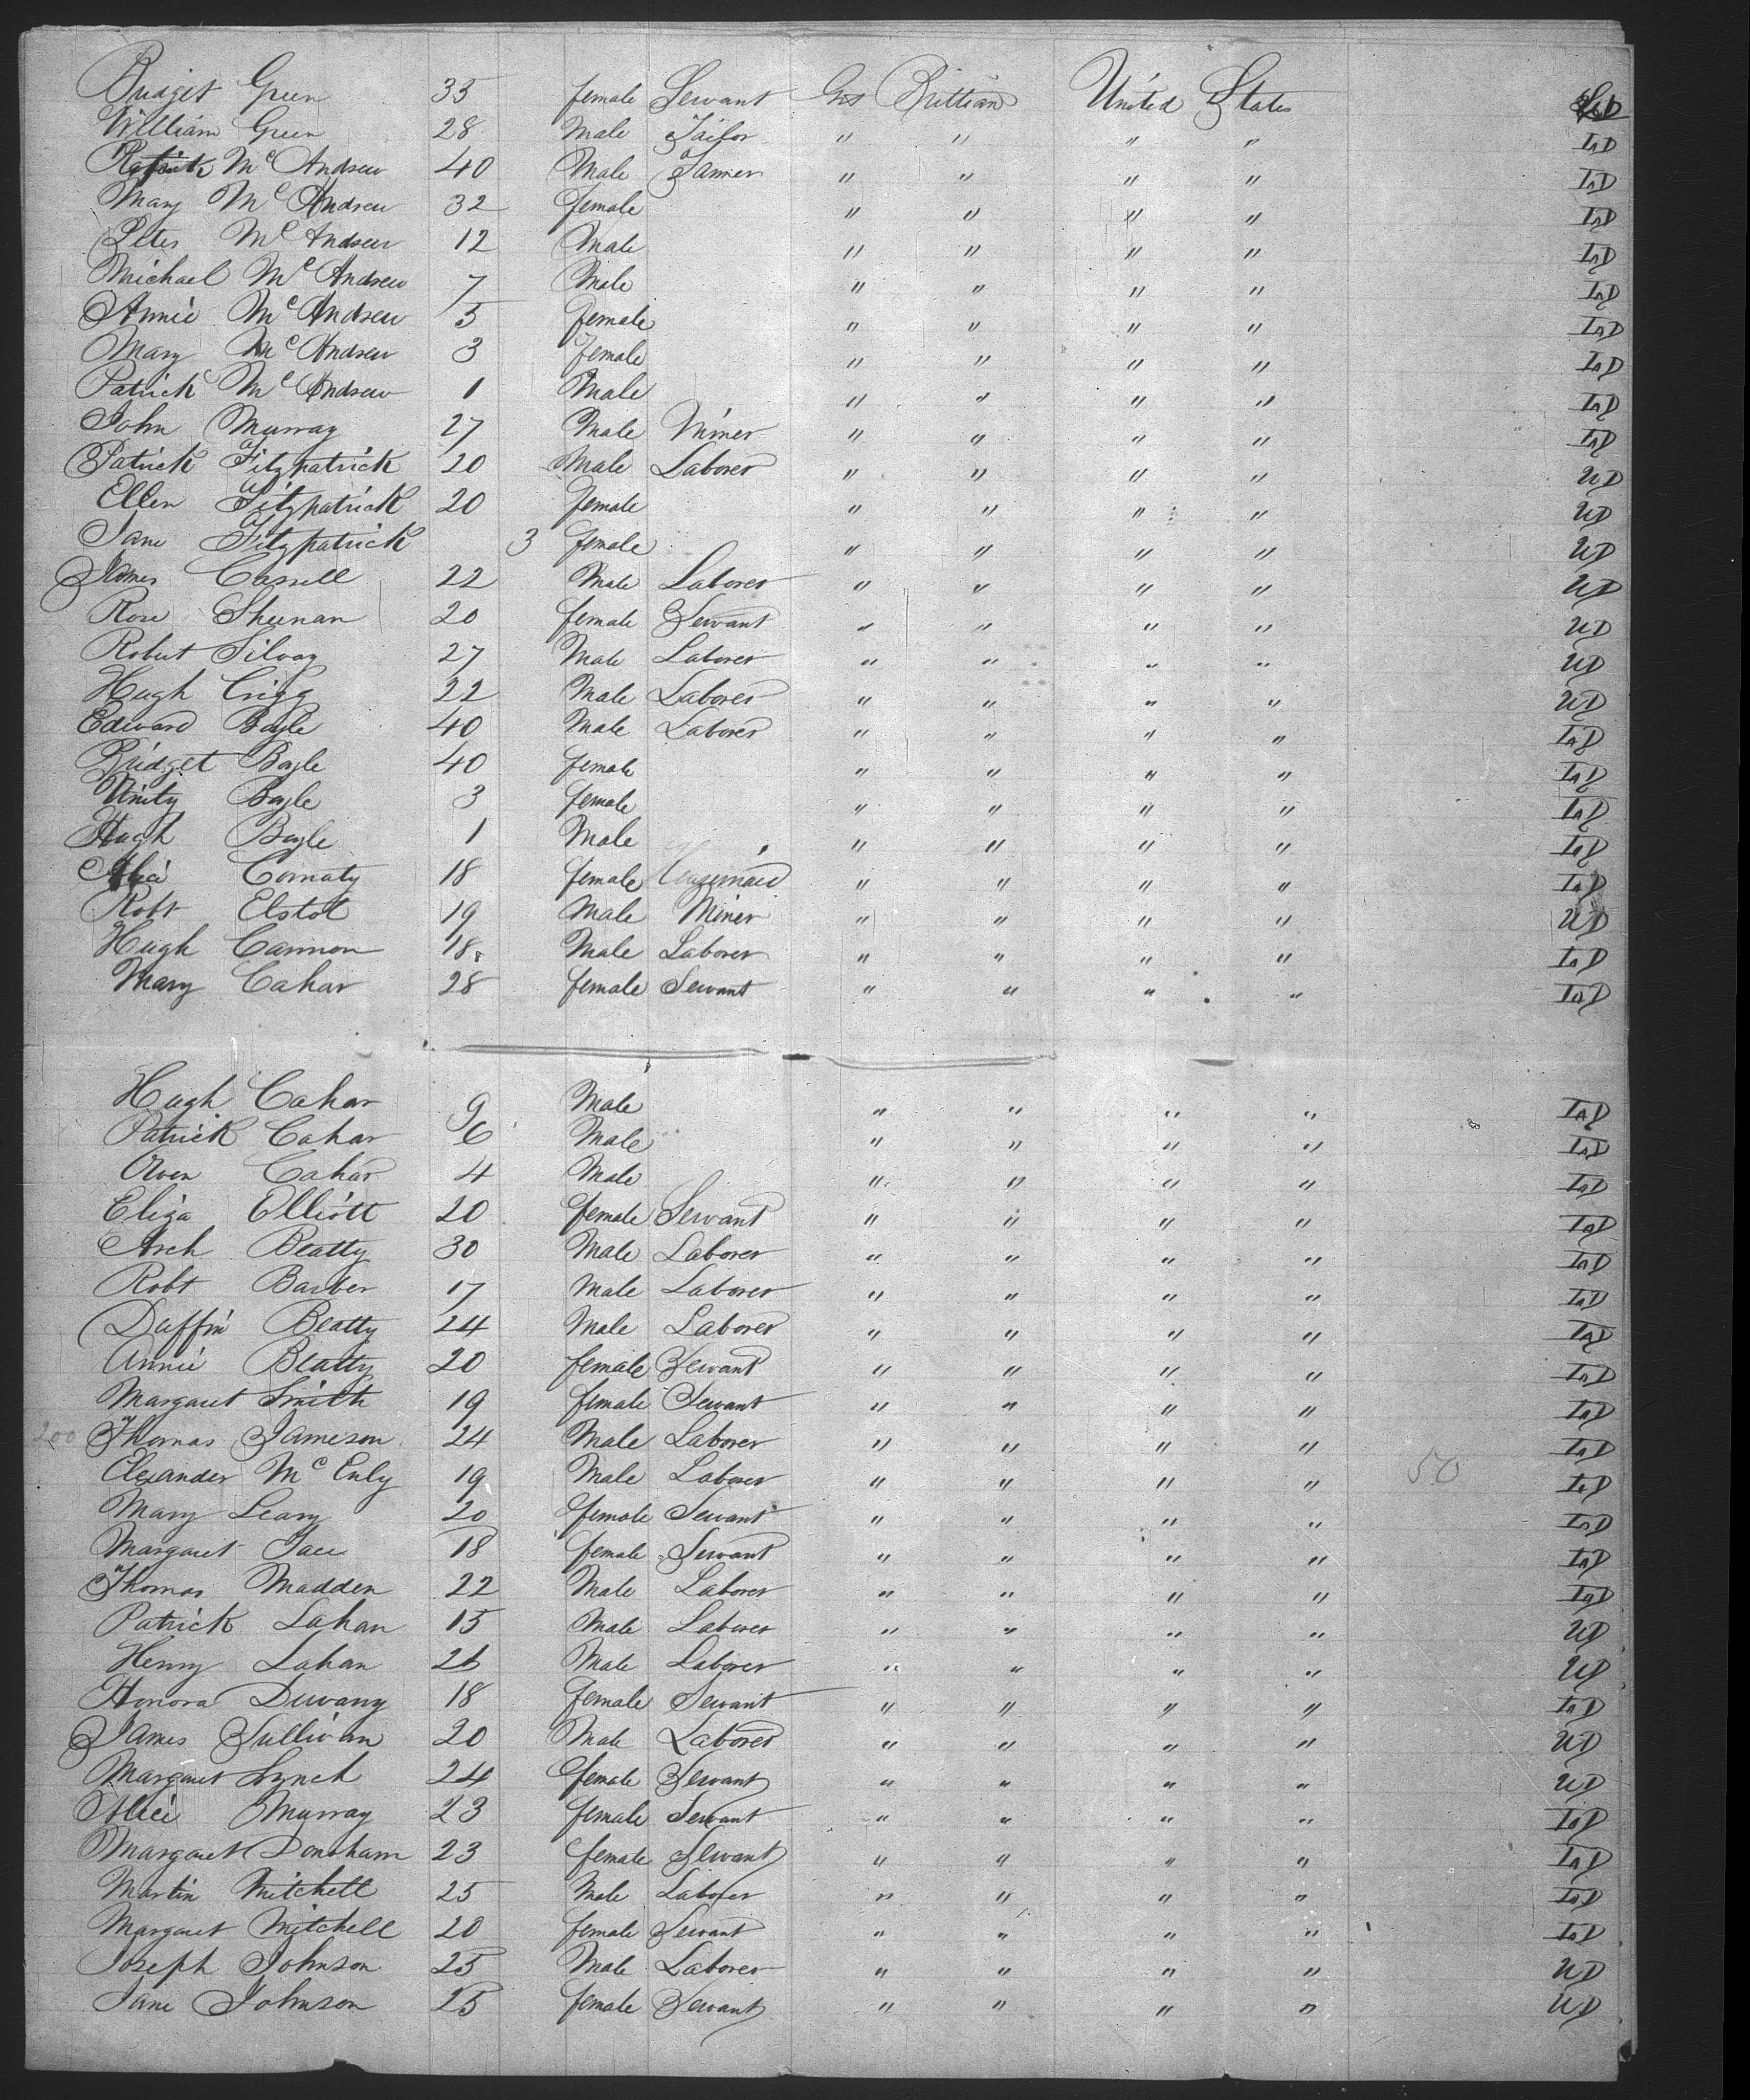 Bridget Green 35 female Servant Grt Brittian United States LD
William Green 28 Male Tailor " " " " LaD
Patrick Mc Andrew 40 Male " " " " LaD
Mary Mc Andrew 32 female " " " " LaD
Peter Mc Andrew 12 Male " " " " LaD
Michael Mc Andrew 7 Male " " " " LaD
Annie Mc Andrew 5 female " " " " LaD
Mary Mc Andrew 3 female " " " " LaD
Patrick Mc Andrew 1 Male " " " " LaD
John Murray 27 Male Miner " " " " LaD
Patrick Fitzpatrick 20 Male Laborer " " " " UD
Ellen Fitzpatrick 20 female " " " " UD
Jane Fitzpatrick 3 female " " " " UD
James Cassell 22 Male Laborer " " " " UD
Rose Sheenan 20 female Servant " " " " UD
Robert Silvay 27 Male Laborer " " " " UD
Hugh Crigg 22 Male Laborer " " " " UD
Edward Boyle 40 Male Laborer " " " " LaD
Bridget Boyle 40 female " " " " LaD
Unity Boyle 3 female " " " " LaD
Hugh Boyle 1 Male " " " " LaD
Alice 18 female " " " " LaD
Robt Elstot 19 Male Miner " " " " UD
Hugh Cannon 18 Male Laborer " " " " LaD
Mary Cahar 28 female Servant " " " " LaD
Hugh Cahar 9 Male " " " " LaD
Patrick Cahar 6 Male " " " " LaD
Owen Cahar 4 Male " " " " LaD
Eliza Elliott 20 female Servant " " " " LaD
Arch Beatty 30 Male Laborer " " " " LaD
Robt Barber 17 Male Laborer " " " " LaD
Duffin Beatty 24 Male Laborer " " " " LaD
Annie Beatty 20 female Servant " " " " LaD
Margaret Smith 19 female Servant " " " " LaD
200 Thomas Jameson 24 Male Laborer " " " " LaD
Elexander Mc Enly 19 Male Laborer " " " " 50 LaD
Mary Leary 20 female Servant " " " " LaD
Margaret 18 female Servant " " " " LaD
Thomas Madden 22 Male Laborer " " " " LaD
Patrick Lahan 15 Male Laborer " " " " UD
Henry Lahan 26 Male Laborer " " " " UD
Honora Duvany 18 female Servant " " " " LaD
James Sullivan 20 Male Laborer " " " " UD
Margaret Lynch 24 female Servant " " " " UD
Alice Murray 23 female Servant " " " " LaD
Margaret Donaham 23 female Servant " " " " LaD
Martin Mitchell 25 Male Laborer " " " " LaD
Margaret Mitchell 20 female Servant " " " " LaD
Joseph Johnson 25 Male Laborer " " " " UD
Jane Johnson 25 female Servant " " " " UD